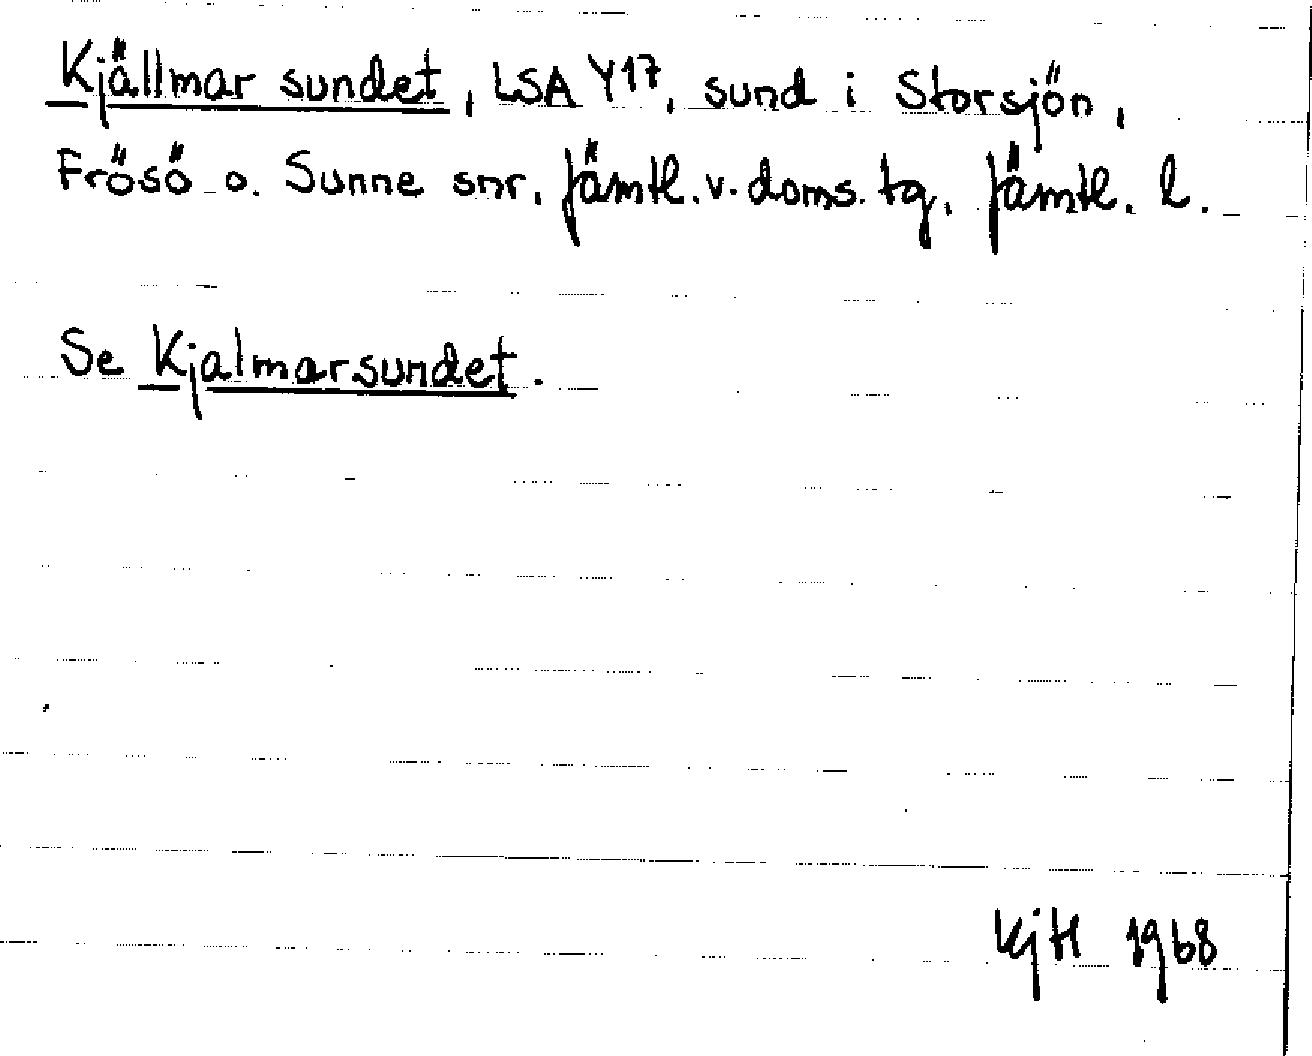 Kjällmar sundet, LSA Y17, sund i Storsjön,
Frösö o. Sunne snr. Jämtl. v. doms. tg, Jämtl. l.
Se Kjalmarsundet.
KjH 1968